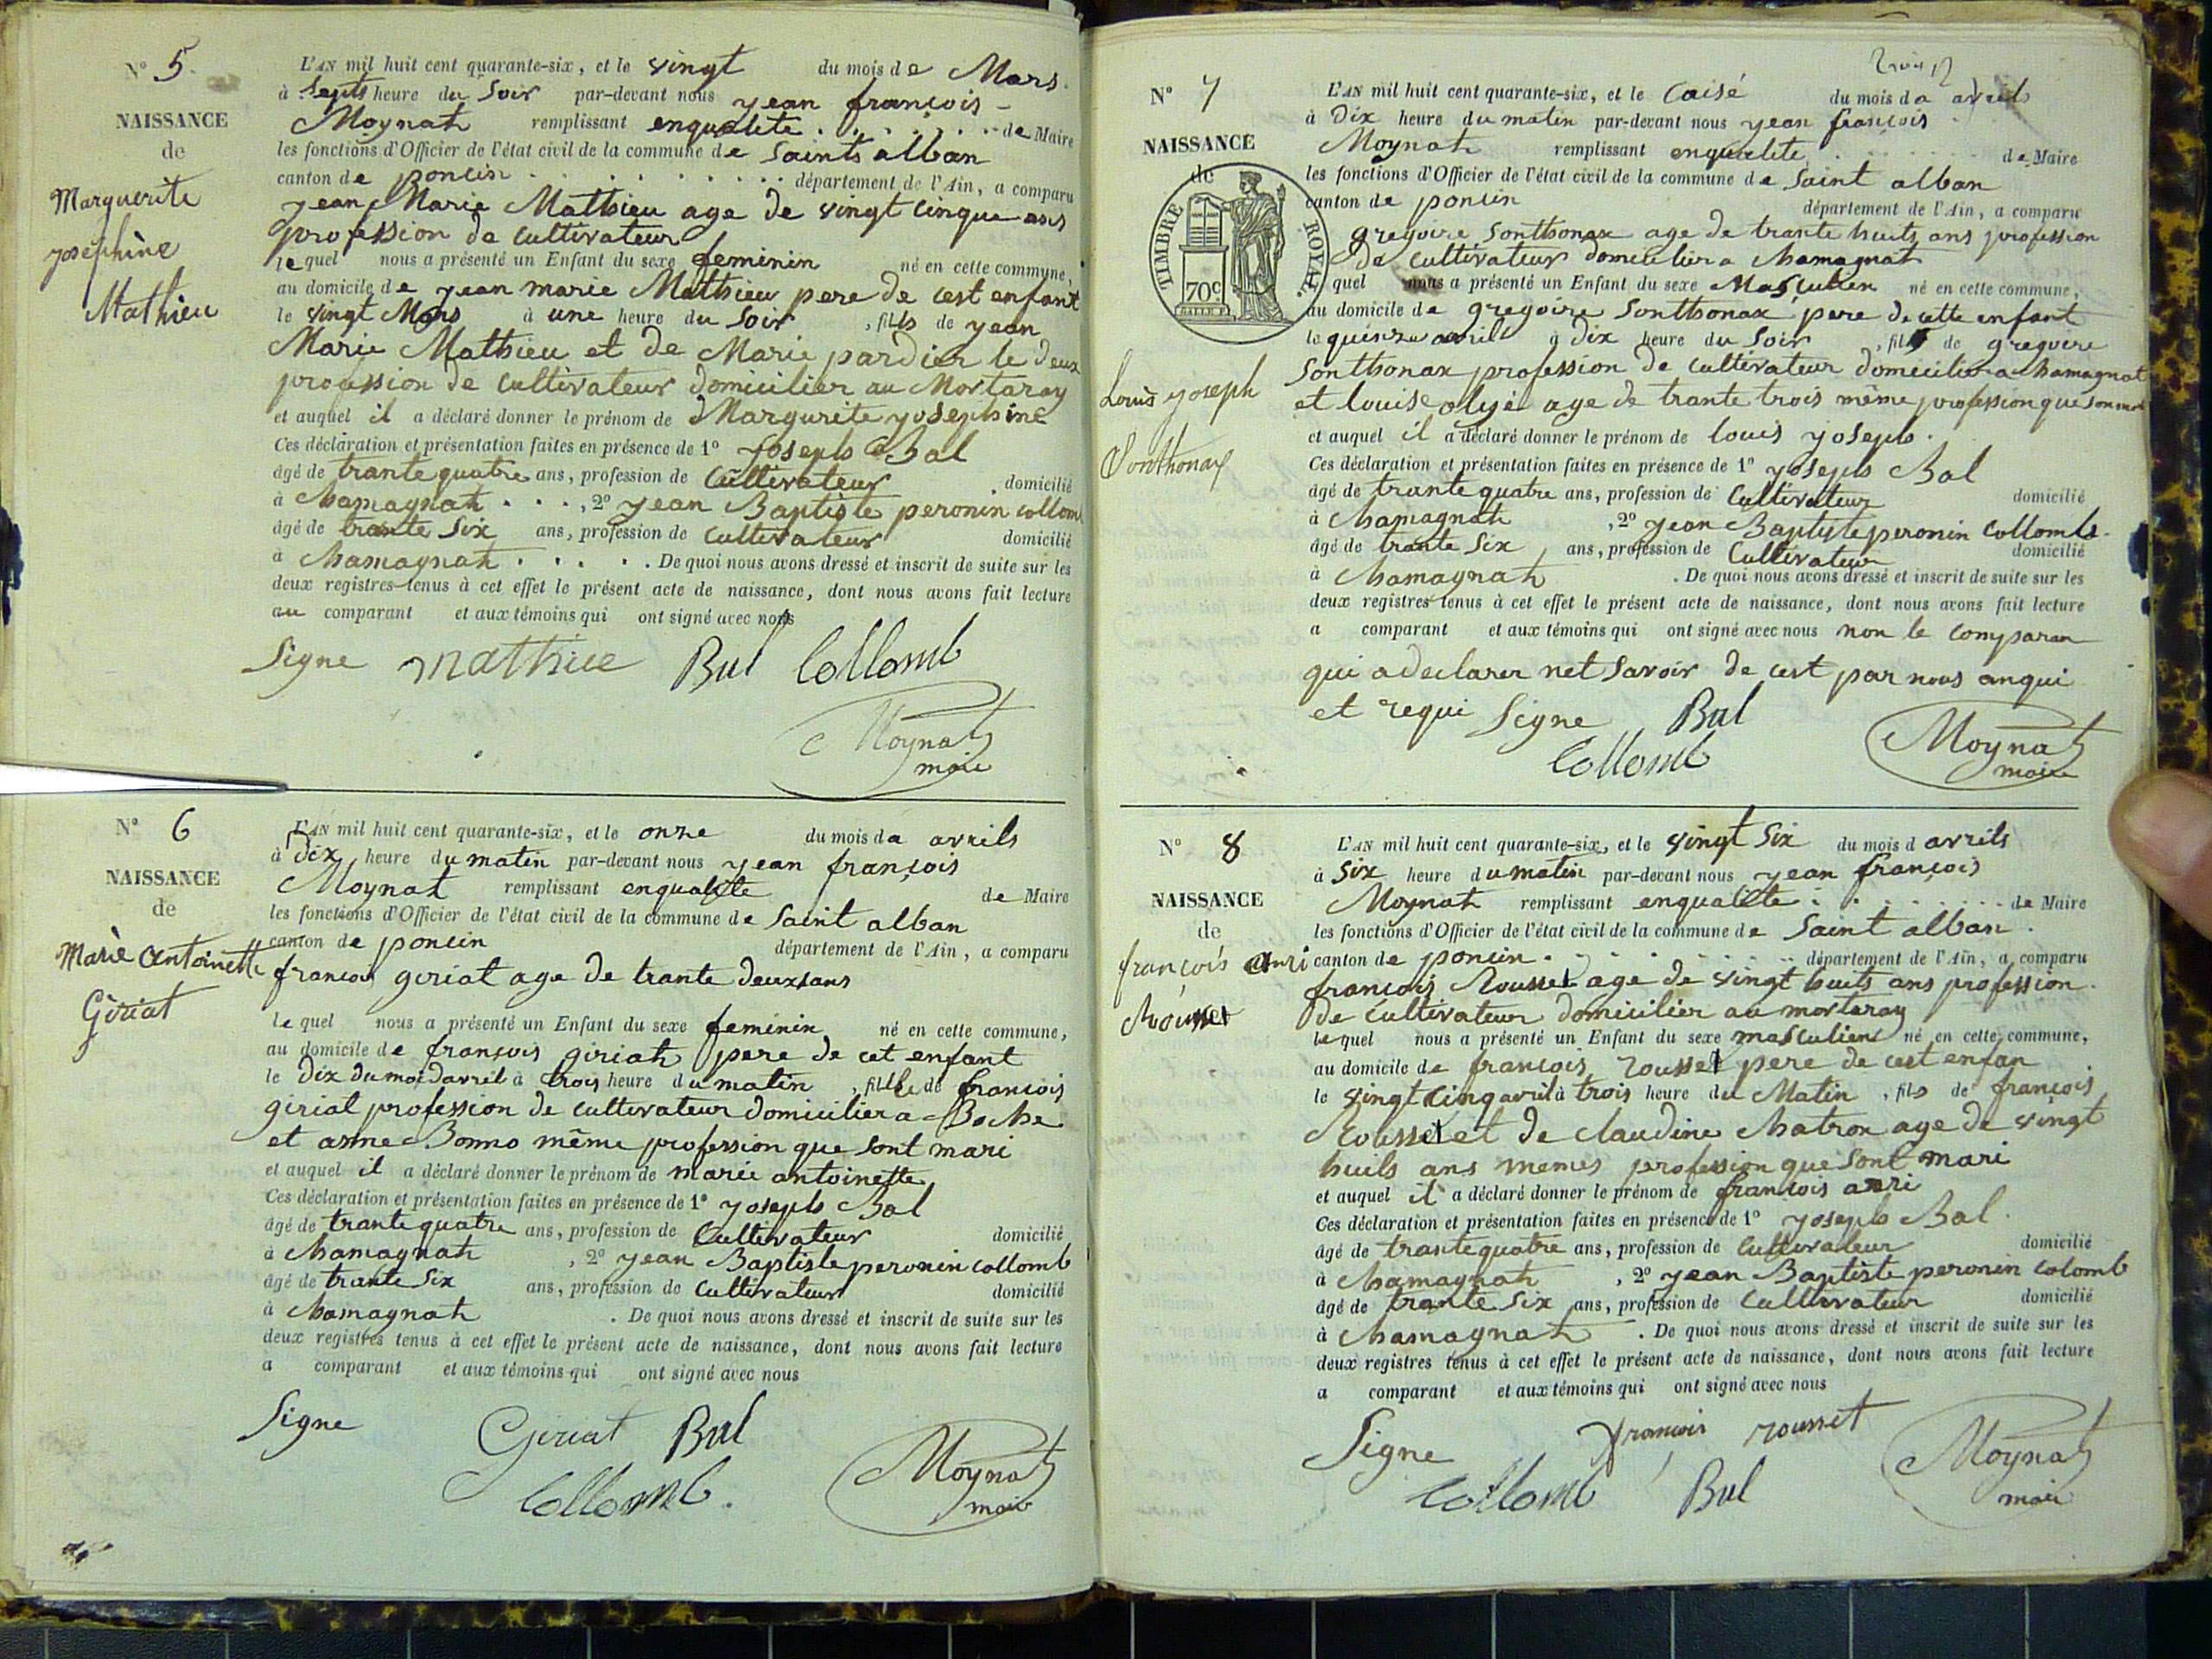 N° 5.
NAISSANCE
de
Marguerite
joséphine
Mathieu
L'AN mil huit cent quarante-six, et le vingt du mois de Mars.
à Septs heure du Soir par-devant nous yean françois -
Moynat remplissant enqualite . . . . . . . de Maire
les fonctions d'Officier de l'état civil de la commune de Saints alban
canton de poncin . . . . . . . . . département de l'Ain, a comparu
yean Marie Mathieu age de vingt cinque ans
profession de Cultivateur
lequel nous a présenté un Enfant du sexe feminin né en cette commune,
au domicile de yean marie Mathieu pere de cest enfant
le vingt Mars à une heure du Soir , fills de yean
Marie Mathieu et de Marie pardier le deux
profession de Cultivateur domicilier au Mortaray
et auquel il a déclaré donner le prénom de Margurite yosephine
Ces déclaration et présentation faites en présence de 1° yoseph Bal
âgé de trante quatre ans, profession de Cultivateur domicilié
à Chamagnat . . . , 2° yean Baptiste peronin collomb
âgé de trante Six ans, profession de Cultivateur domicilié
à Chamagnat . . . . . De quoi nous avons dressé et inscrit de suite sur les
deux registres tenus à cet effet le présent acte de naissance, dont nous avons fait lecture
au comparant et aux témoins qui ont signé avec nous
Signe mathieu Bul Collomb
Moynat
maire
N° 6
NAISSANCE
de
Marie Antoinette
Giriat
L'AN mil huit cent quarante-six, et le onze du mois da avrils
à Dix heure du matin par-devant nous yean françois
Moynat remplissant enqualite de Maire
les fonctions d'Officier de l'état civil de la commune de Saint alban
canton de poncin département de l'Ain, a comparu
francois giriat age de trante deuxsans
lequel nous a présenté un Enfant du sexe feminin né en cette commune,
au domicile de françois giriat pere de cet enfant
le Dix du moi davril à trois heure du matin , fille de françois
giriat profession de cultivateur domicilier a Boche
et anne Bonno même profession que sont mari
et auquel il a déclaré donner le prénom de marie antoinette
Ces déclaration et présentation faites en présence de 1° yoseph Bal
âgé de trante quatre ans, profession de Cultivateur domicilié
à Chamagnat , 2° yean Baptiste peronin collomb
âgé de trante Six ans, profession de Cultivateur domicilié
à Chamagnat . De quoi nous avons dressé et inscrit de suite sur les
deux registres tenus à cet effet le présent acte de naissance, dont nous avons fait lecture
a comparant et aux témoins qui ont signé avec nous
Signe Giriat Bul
Collomb
Moynat
maire
N° 7
NAISSANCE
de
TIMBRE ROYAL.
70c
Louis yoseph
Sonthonax
L'AN mil huit cent quarante-six, et le Caisé du mois da avrils
à Dix heure du matin par-devant nous yean françois
Moynat remplissant enqualite . . . . . de Maire
les fonctions d'Officier de l'état civil de la commune de Saint alban
canton de poncin département de l'Ain, a comparu
gregoire Sonthonax age de trante huits ans profession
de cultivateur domicilier a Chamagnat
quel nous a présenté un Enfant du sexe Masculien né en cette commune,
au domicile de gregoire Sonthonax pere de cette enfant
le quinze avril à dix heure du Soir , fils de gregoire
Sonthonax profession de cultivateur domicilier a Chamagnat
et louise olyé age de trante trois même profession que son mari
et auquel il a déclaré donner le prénom de louis yoseph.
Ces déclaration et présentation faites en présence de 1° yoseph Bal
âgé de trante quatre ans, profession de Cultivateur domicilié
à Chamagnat , 2° yean Baptyste peronin Collomb.
âgé de trante Six ans, profession de Cultivateur domicilié
à Chamagnat . De quoi nous avons dressé et inscrit de suite sur les
deux registres tenus à cet effet le présent acte de naissance, dont nous avons fait lecture
a comparant et aux témoins qui ont signé avec nous non le comparan
qui a declarer net Savoir de cest par nous anqui
et requi Signe Bul
Collomb
Moynat
maire
N° 8
NAISSANCE
de
françois anri
Rousset
L'AN mil huit cent quarante-six, et le vingt Six du mois d avrils
à Six heure du matin par-devant nous yean françois
Moynat remplissant enqualite . . . . . . de Maire
les fonctions d'Officier de l'état civil de la commune de Saint alban .
canton de poncin . . . . . . . département de l'Ain, a comparu
françois Rousset age de vingt huits ans profession.
de Cultivateur domicilier au mortaray
lequel nous a présenté un Enfant du sexe masculien né en cette commune,
au domicile de françois rousset pere de cest enfan
le vingt cinq avril à trois heure du Matin , fils de françois
Rousset et de claudine Chatron age de vingt
huits ans memes profession que sont mari
et auquel il a déclaré donner le prénom de francois anri
Ces déclaration et présentation faites en présence de 1° yoseph Bal.
âgé de trante quatre ans, profession de Cultivateur domicilié
à Chamagnat , 2° yean Baptiste peronin colomb
âgé de trante Six ans, profession de Cultivateur domicilié
à Chamagnat . De quoi nous avons dressé et inscrit de suite sur les
deux registres tenus à cet effet le présent acte de naissance, dont nous avons fait lecture
a comparant et aux témoins qui ont signé avec nous
Signe francois rousset
Collomb Bul
Moynat
maire